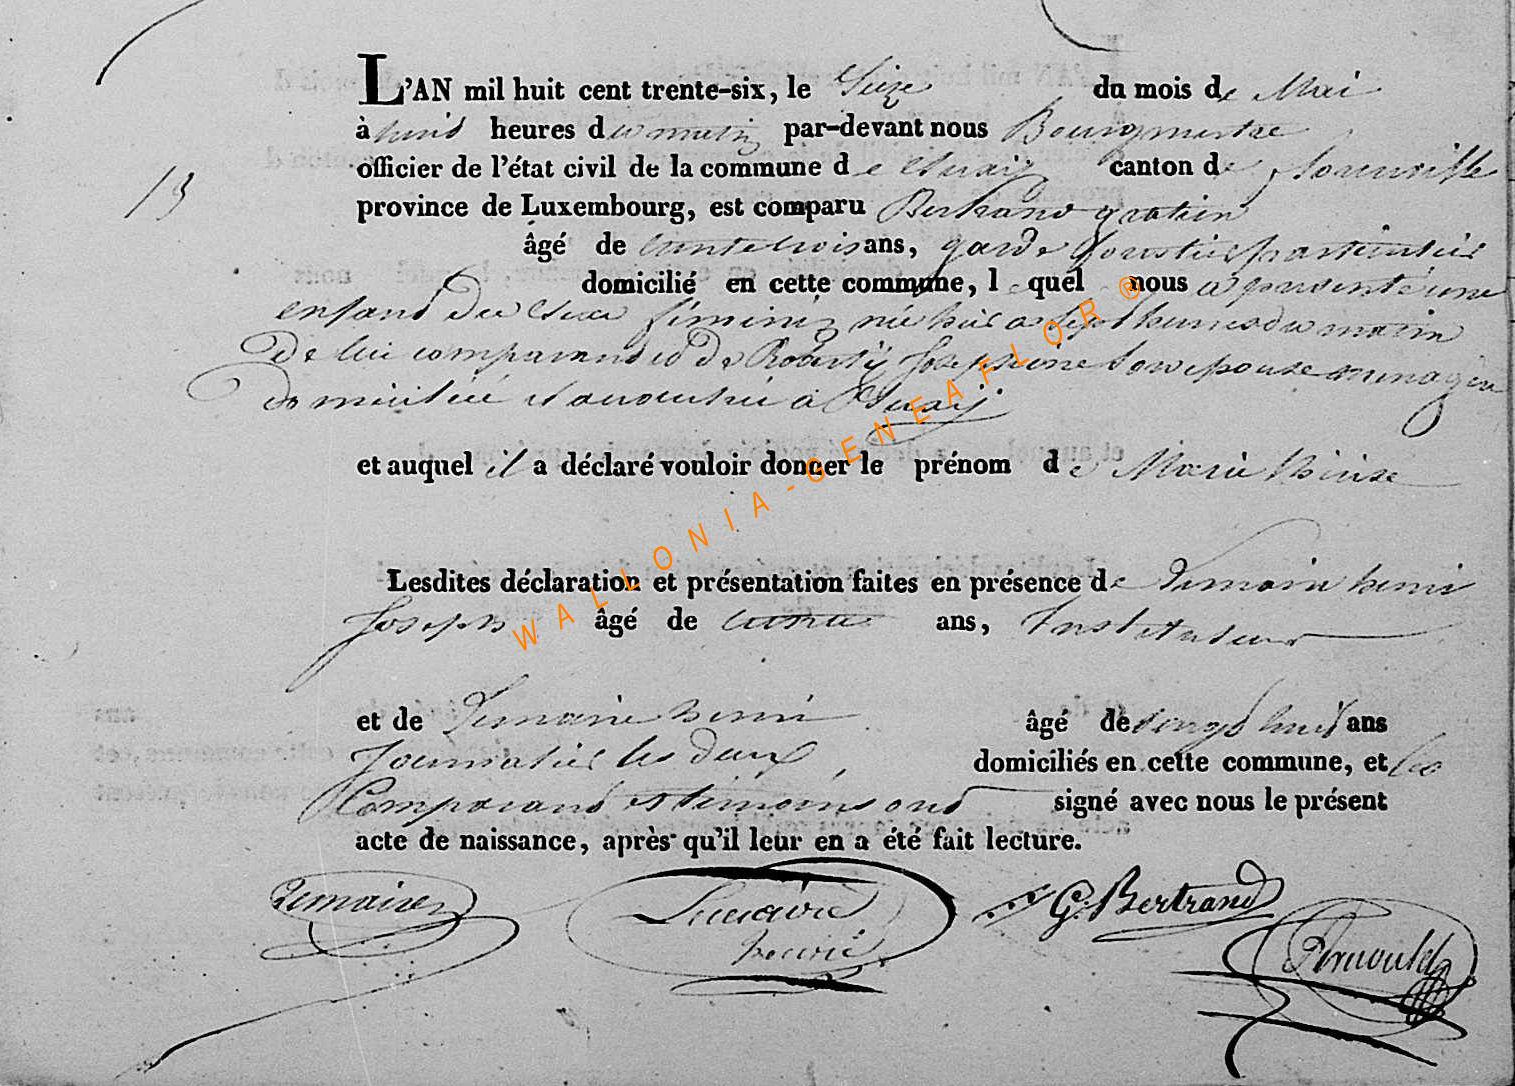 L'AN mil huit cent trente-six, le Seize du mois de Mai
à huit heures du matin par-devant nous Bourgmestre
officier de l'état civil de la commune de canton de
13
province de Luxembourg, est comparu Bertrand gratien
âgé de trente trois ans, garde forestier particulier
domicilié en cette commune, lequel nous a presenté une
enfant du sexe feminin née hier a sept heures du matin
de lui comparand et de Josephine son epouse menagere
domiciliée et accouchée a
et auquel il a déclaré vouloir donner le prénom de Marie
Lesdites déclaration et présentation faites en présence de Lemaire henri
Joseph âgé de ans, Instituteur
et de Lemaire henri âgé de vingt huit ans
Journalier les deux domiciliés en cette commune, et les
Comparand et temoins ont signé avec nous le présent
acte de naissance, après qu'il leur en a été fait lecture.
Lemaire Lemaire G. Bertrand
henri Arnould
WALLONIA-GENEAFLOR®